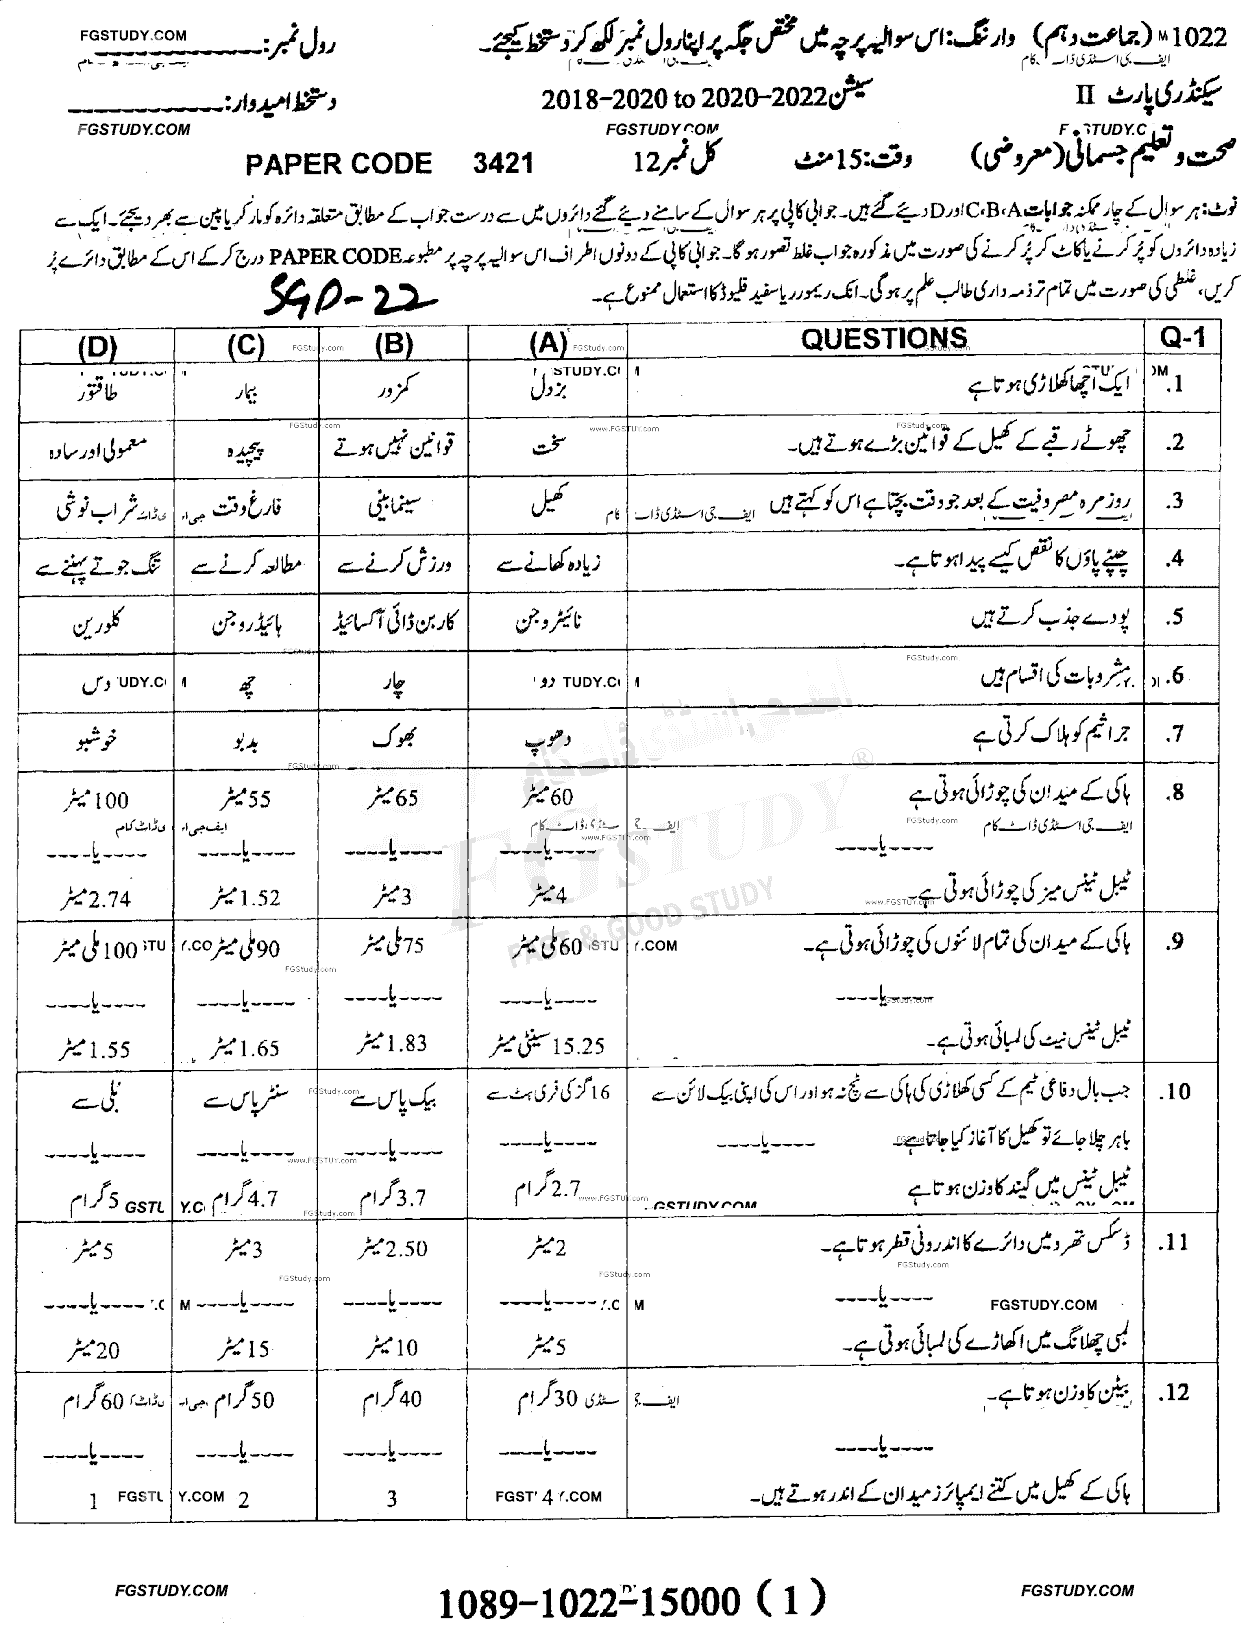 1022M (جماعت دہم) وارننگ: اس سوالیہ پرچہ میں مختص جگہ پر اپنا رول نمبر لکھ کر دستخط کیجئے۔ رول نمبر: FGSTUDY.COM
سیکنڈری پارٹ II سیشن 2018-2020 to 2020-2022 دستخط امیدوار:
FGSTUDY.COM FGSTUDY.COM
صحت و تعلیم جسمانی (معروضی) وقت: 15 منٹ کل نمبر 12 PAPER CODE 3421
نوٹ: ہر سوال کے چار ممکنہ جوابات A،B،C اور D دیئے گئے ہیں۔ جوابی کاپی پر ہر سوال کے سامنے دیئے گئے دائروں میں سے درست جواب کے مطابق متعلقہ دائرہ کو مارکر یا پین سے بھر دیجئے۔ ایک سے
زیادہ دائروں کو پُر کرنے یا کاٹ کر پُر کرنے کی صورت میں مذکورہ جواب غلط تصور ہو گا۔ جوابی کاپی کے دونوں اطراف اس سوالیہ پرچہ پر مطبوعہ PAPER CODE درج کر کے اس کے مطابق دائرے پُر
کریں، غلطی کی صورت میں تمام تر ذمہ داری طالب علم پر ہو گی۔ انک ریموور یا سفید فلیوڈ کا استعمال ممنوع ہے۔
SGD-22
Q-1 QUESTIONS (A) (B) (C) (D)
1. ایک اچھا کھلاڑی ہوتا ہے بزدل کمزور بیمار طاقتور
2. چھوٹے رقبے کے کھیل کے قوانین بڑے ہوتے ہیں۔ سخت قوانین نہیں ہوتے پیچیدہ معمولی اور سادہ
3. روزمرہ مصروفیت کے بعد جو وقت بچتا ہے اس کو کہتے ہیں کھیل سینما بینی فارغ وقت شراب نوشی
4. چپٹے پاؤں کا نقص کیسے پیدا ہوتا ہے۔ زیادہ کھانے سے ورزش کرنے سے مطالعہ کرنے سے تنگ جوتے پہننے سے
5. پودے جذب کرتے ہیں نائیٹروجن کاربن ڈائی آکسائیڈ ہائیڈروجن کلورین
6. مشروبات کی اقسام ہیں دو چار چھ دس
7. جراثیم کو ہلاک کرتی ہے دھوپ بھوک بدبو خوشبو
8. ہاکی کے میدان کی چوڑائی ہوتی ہے 60 میٹر 65 میٹر 55 میٹر 100 میٹر
----یا---- ----یا---- ----یا---- ----یا---- ----یا----
ٹیبل ٹینس میز کی چوڑائی ہوتی ہے۔ 4 میٹر 3 میٹر 1.52 میٹر 2.74 میٹر
9. ہاکی کے میدان کی تمام لائنوں کی چوڑائی ہوتی ہے۔ 60 ملی میٹر 75 ملی میٹر 90 ملی میٹر 100 ملی میٹر
----یا---- ----یا---- ----یا---- ----یا---- ----یا----
ٹیبل ٹینس نیٹ کی لمبائی ہوتی ہے۔ 15.25 سینٹی میٹر 1.83 میٹر 1.65 میٹر 1.55 میٹر
10. جب بال دفاعی ٹیم کے کسی کھلاڑی کی ہاکی سے ٹچ نہ ہو اور اس کی اپنی بیک لائن سے 16 گز کی فری ہٹ سے بیک پاس سے سنٹر پاس سے بُلی سے
باہر چلا جائے تو کھیل کا آغاز کیا جاتا ہے۔ ----یا---- ----یا---- ----یا---- ----یا---- ----یا----
ٹیبل ٹینس میں گیند کا وزن ہوتا ہے 2.7 گرام 3.7 گرام 4.7 گرام 5 گرام
11. ڈسکس تھرو میں دائرے کا اندرونی قطر ہوتا ہے۔ 2 میٹر 2.50 میٹر 3 میٹر 5 میٹر
FGSTUDY.COM ----یا---- ----یا---- ----یا---- ----یا---- ----یا----
لمبی چھلانگ میں اکھاڑے کی لمبائی ہوتی ہے۔ 5 میٹر 10 میٹر 15 میٹر 20 میٹر
12. بیٹن کا وزن ہوتا ہے۔ 30 گرام 40 گرام 50 گرام 60 گرام
----یا---- ----یا---- ----یا---- ----یا---- ----یا----
ہاکی کے کھیل میں کتنے ایمپائرز میدان کے اندر ہوتے ہیں۔ 4 3 2 1
FGSTUDY.COM 1089-1022-15000 (1) FGSTUDY.COM
FGSTUDY®
FAST & GOOD STUDY